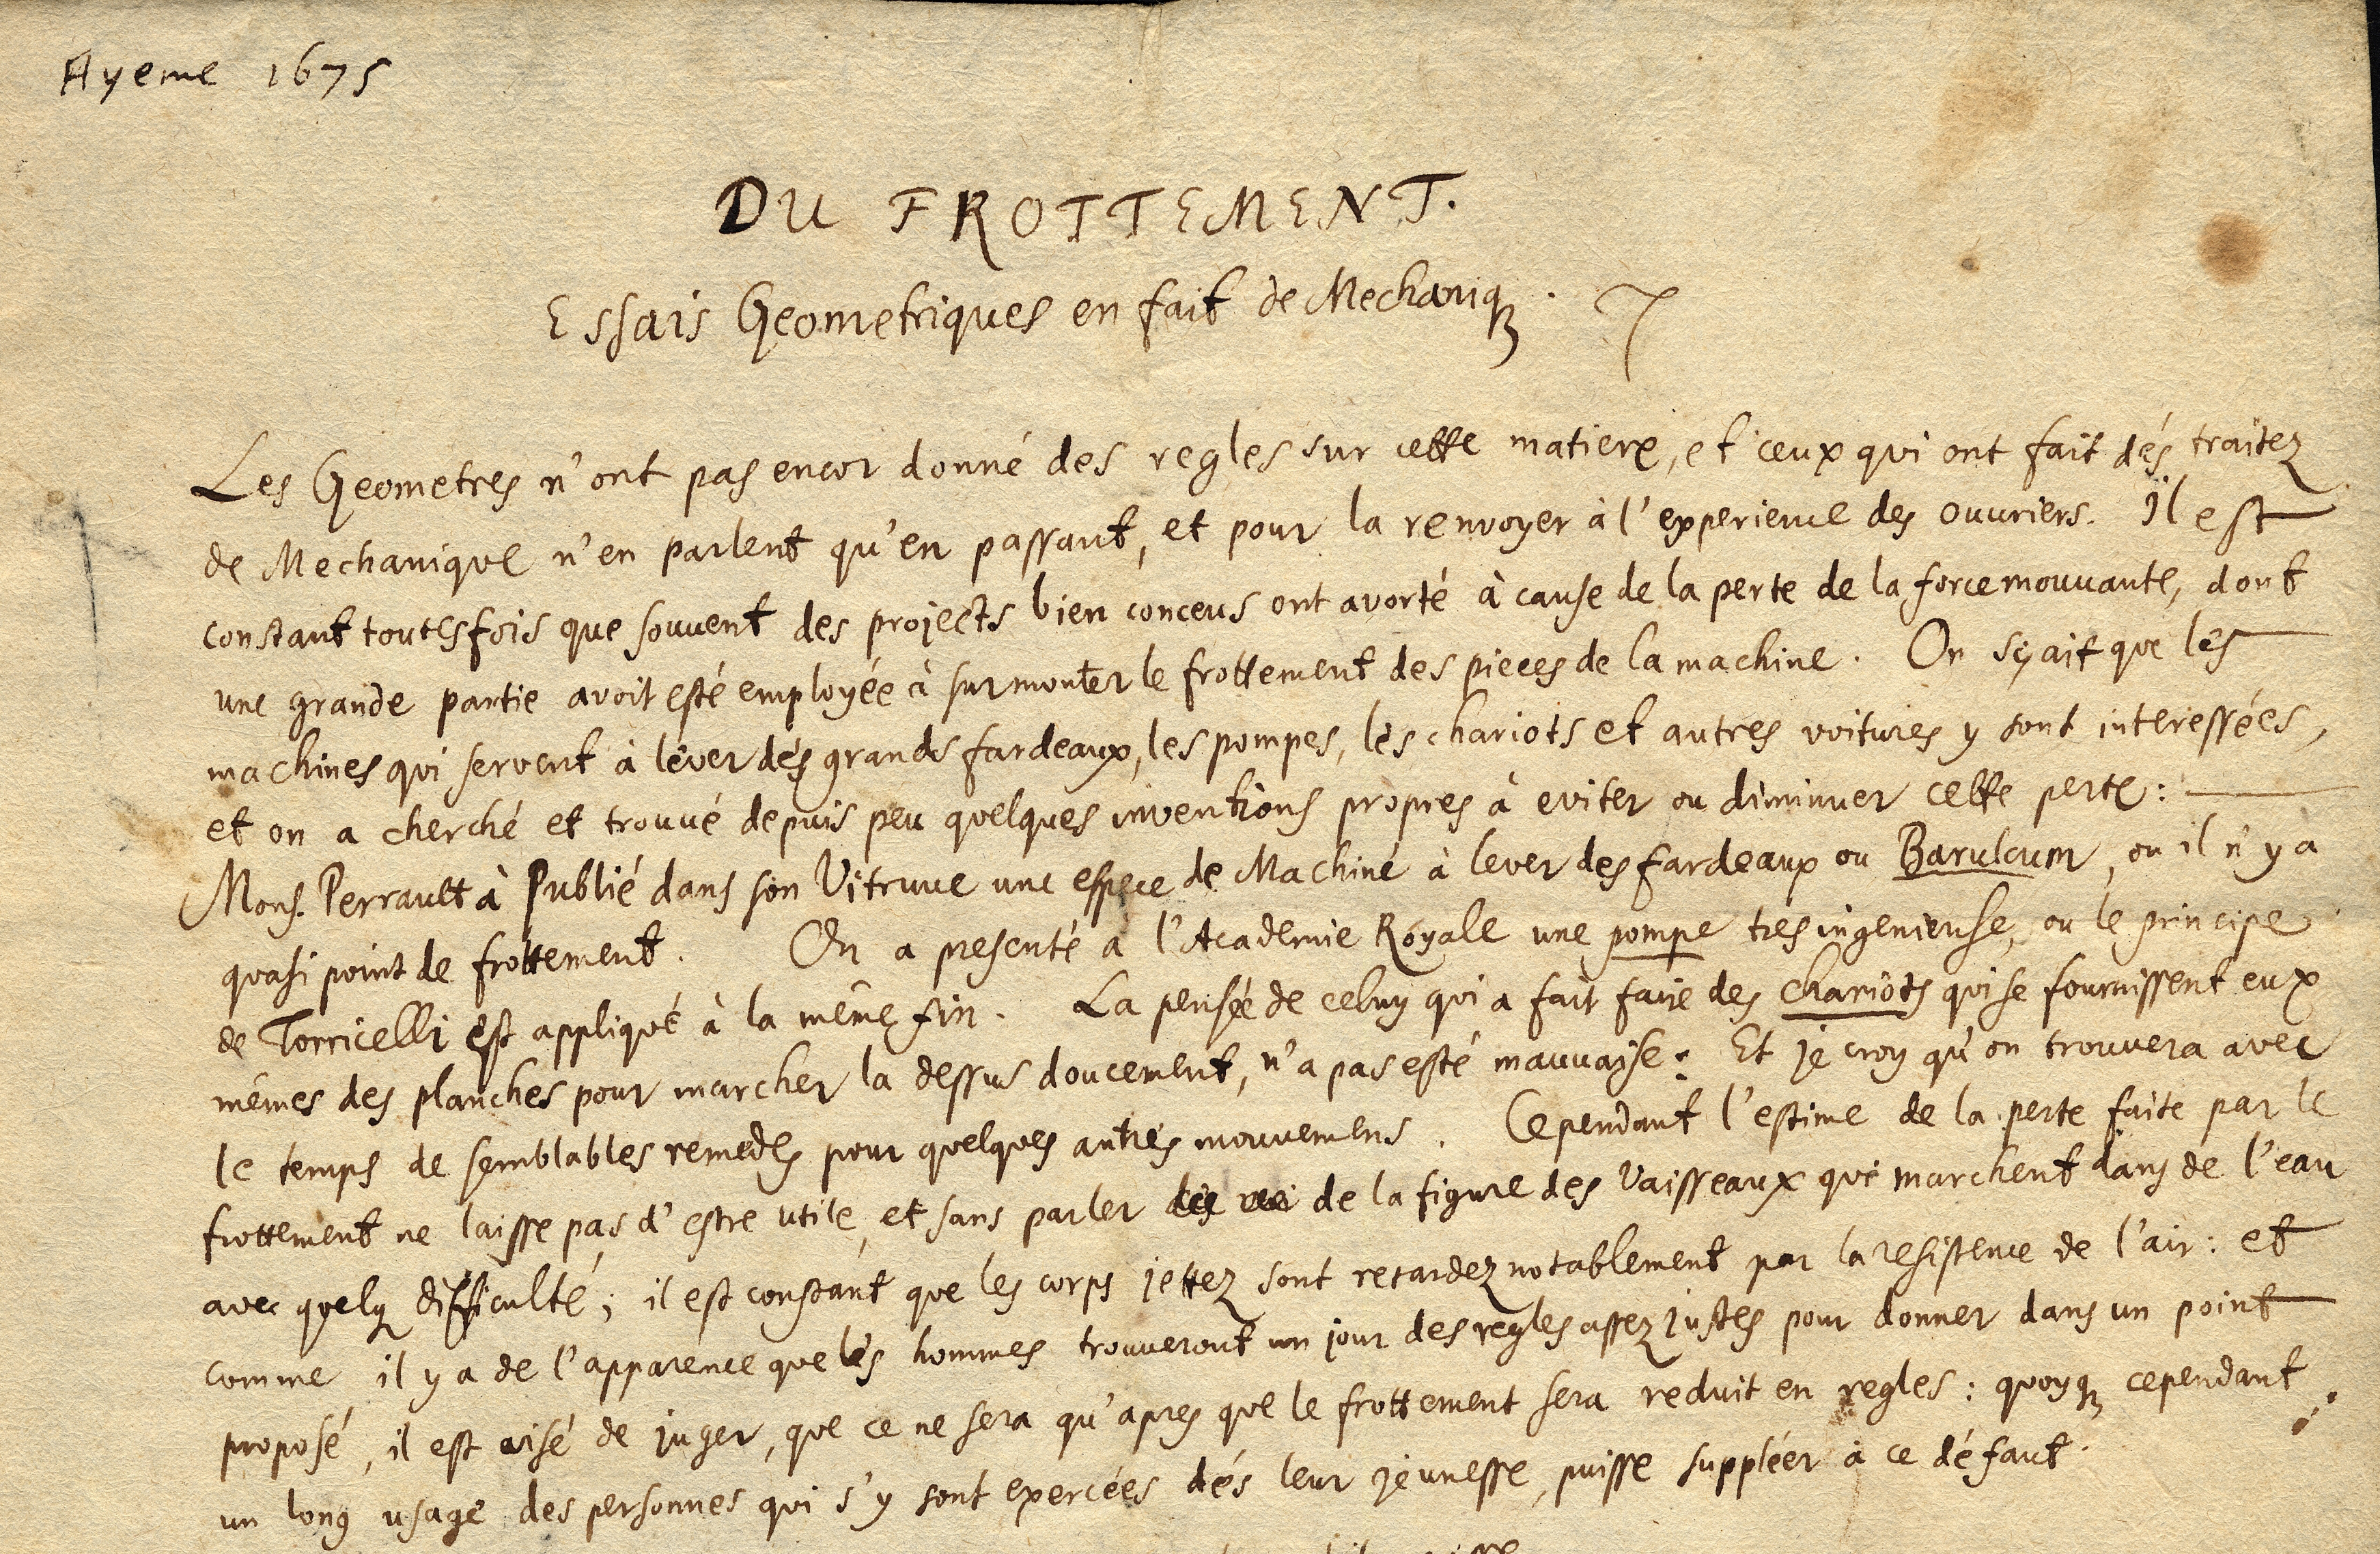 Ayeme 1675
DU FROTTEMENT.
Essais Geometriques en fait de Mechaniqꝫ.
Les Geometres n'ont pas encor donné des regles sur cette matiere, et ceux qui ont fait dés traitez
de Mechanique n'en parlent qu'en passant, et pour la renvoyer à l'experience des ouvriers. Il est
constant toutesfois que souvent des projects bien conceus ont avorté à cause de la perte de la force mouvante, dont
une grande partie avoit esté employée à surmonter le frottement des pieces de la machine. On sçait que les
machines qui servent à lever dés grands fardeaux, les pompes, les chariots et autres voitures y sont interessées,
et on a cherché et trouvé depuis peu quelques inventions propres à eviter ou diminuer cette perte:
Mons. Perrault à Publié dans son Vitruve une espece de Machine à lever des fardeaux ou Barulcum, ou il n'y a
quasi point de frottement. On a presenté a l'Academie Royale une pompe tres ingenieuse, ou le principe
de Torricelli est appliqué à la même fin. La pensée de celuy qui a fait faire des chariots qui se fournissent eux
mêmes des planches pour marcher la dessus doucement, n'a pas esté mauvaise: Et je croy qu'on trouvera avec
le temps de semblables remedes pour quelques autres mouvemens. Cependant l'estime de la perte faite par le
frottement ne laisse pas d'estre utile, et sans parler de la figure des Vaisseaux qui marchent dans de l'eau
avec quelqꝫ difficulté; il est constant que les corps jettez sont retardez notablement par la resistence de l'air: et
comme il y a de l'apparence que les hommes trouveront un jour des regles assez justes pour donner dans un point
proposé, il est aisé de juger, que ce ne sera qu'apres que le frottement sera reduit en regles: quoyqꝫ cependant
un long usage des personnes qui s'y sont exercées dés leur jeunesse, puisse suppléer à ce défaut.